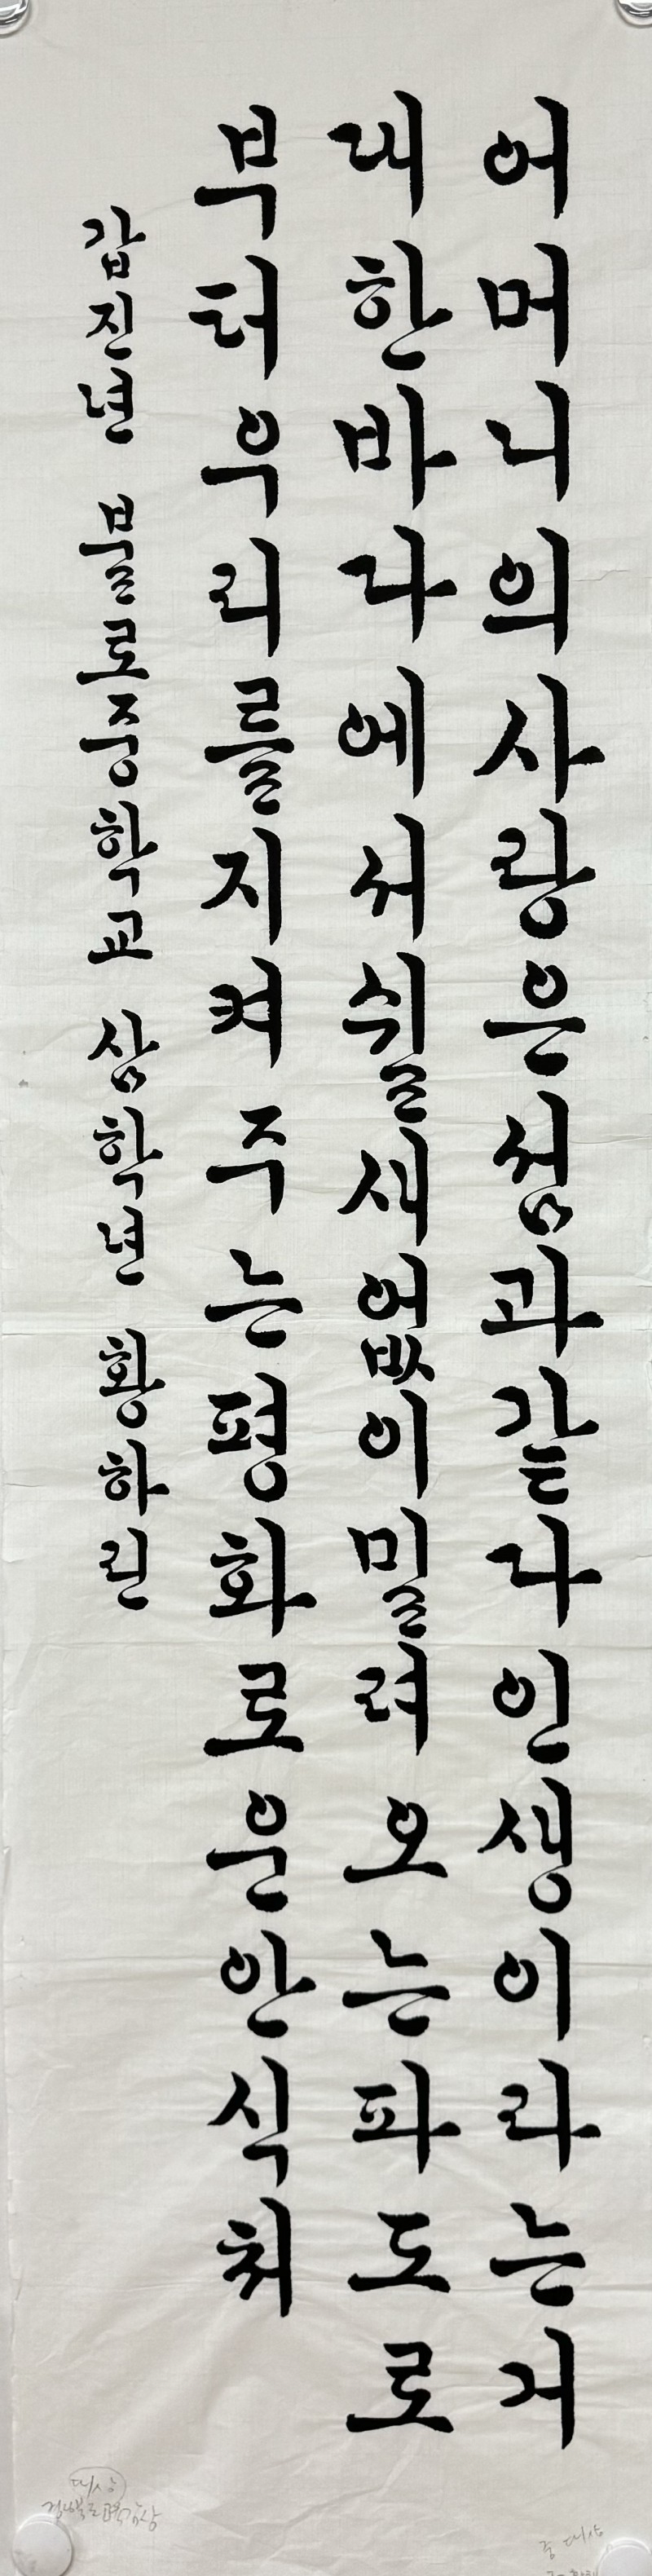 어머니의사랑은섬과같다인생이라는거
대한바다에서쉴새없이밀려오는파도로
부터우리를지켜주는평화로운안식처
갑진년 불로중학교 삼학년 황하린
대상
중 대상